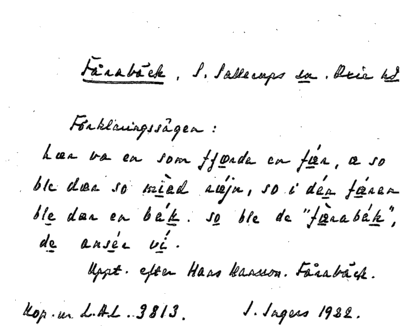 Fårabäck, S. Sallerups sn. Oxie hd
Förklaringssägen:
Hær va en som fjærde en fær, æ so
ble dær so mied ræjn, so i dén færen
ble dær en bék. so ble de "færabék",
de ansér vi.
Uppt. efter Hans Hansson. Fårabäck.
Kop. ur L.A.L. 3813. I. Ingers 1932.